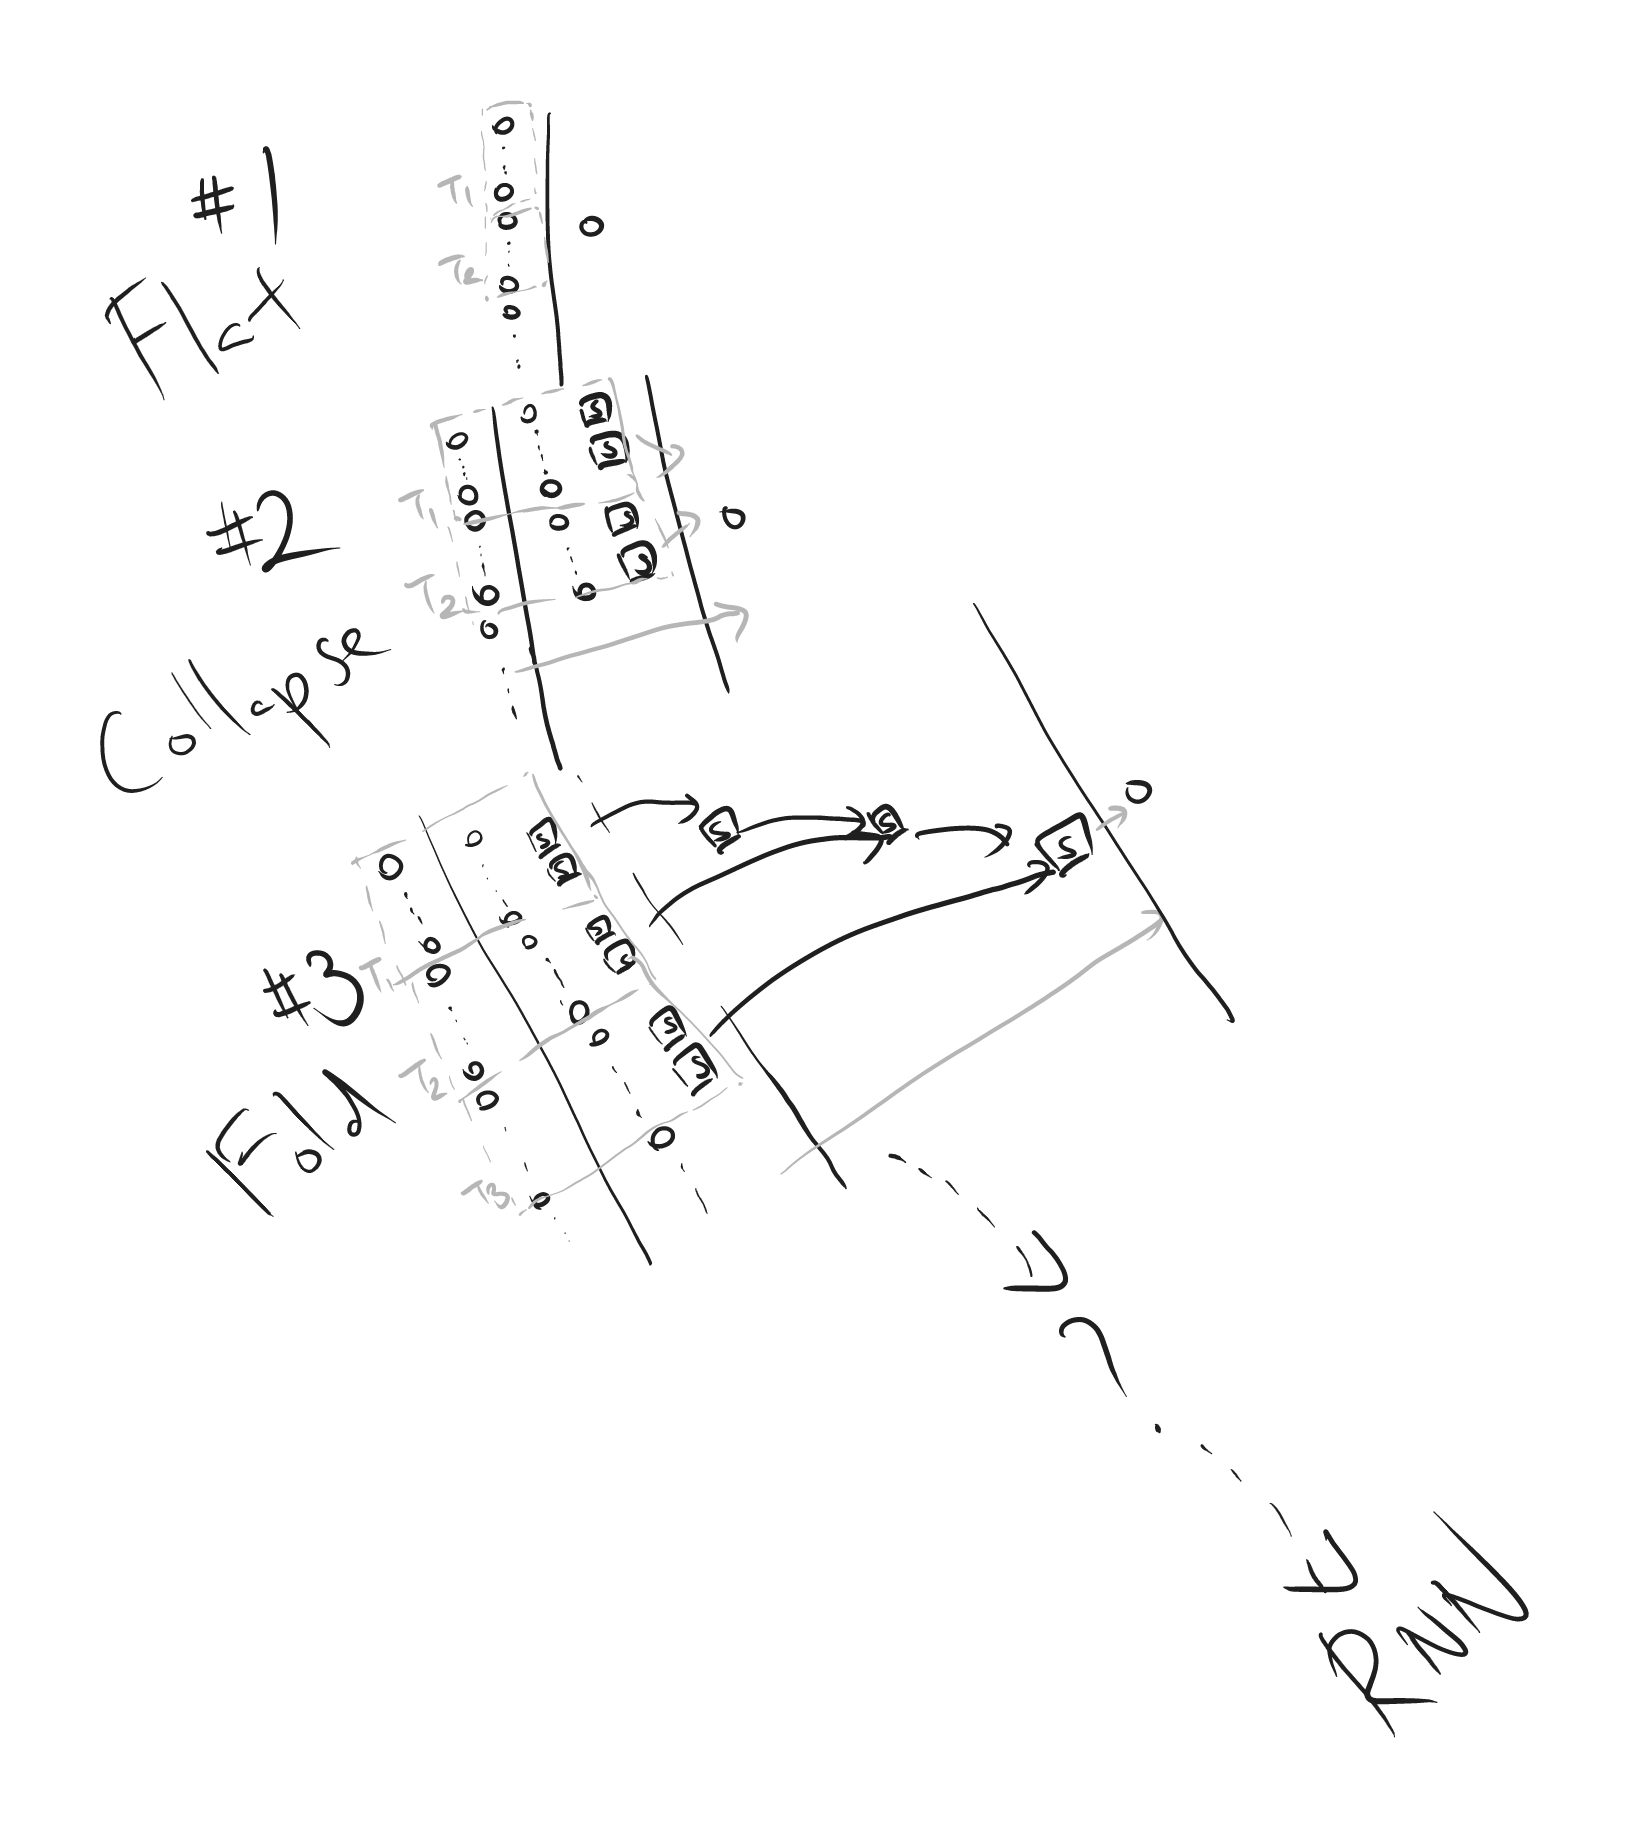 #1
Flat
T1
T2
#2
Collapse
T1
T2
S
S
S
S
#3
Fold
T1
T2
T3
S
S
S
S
S
S
S
S
S
RNN